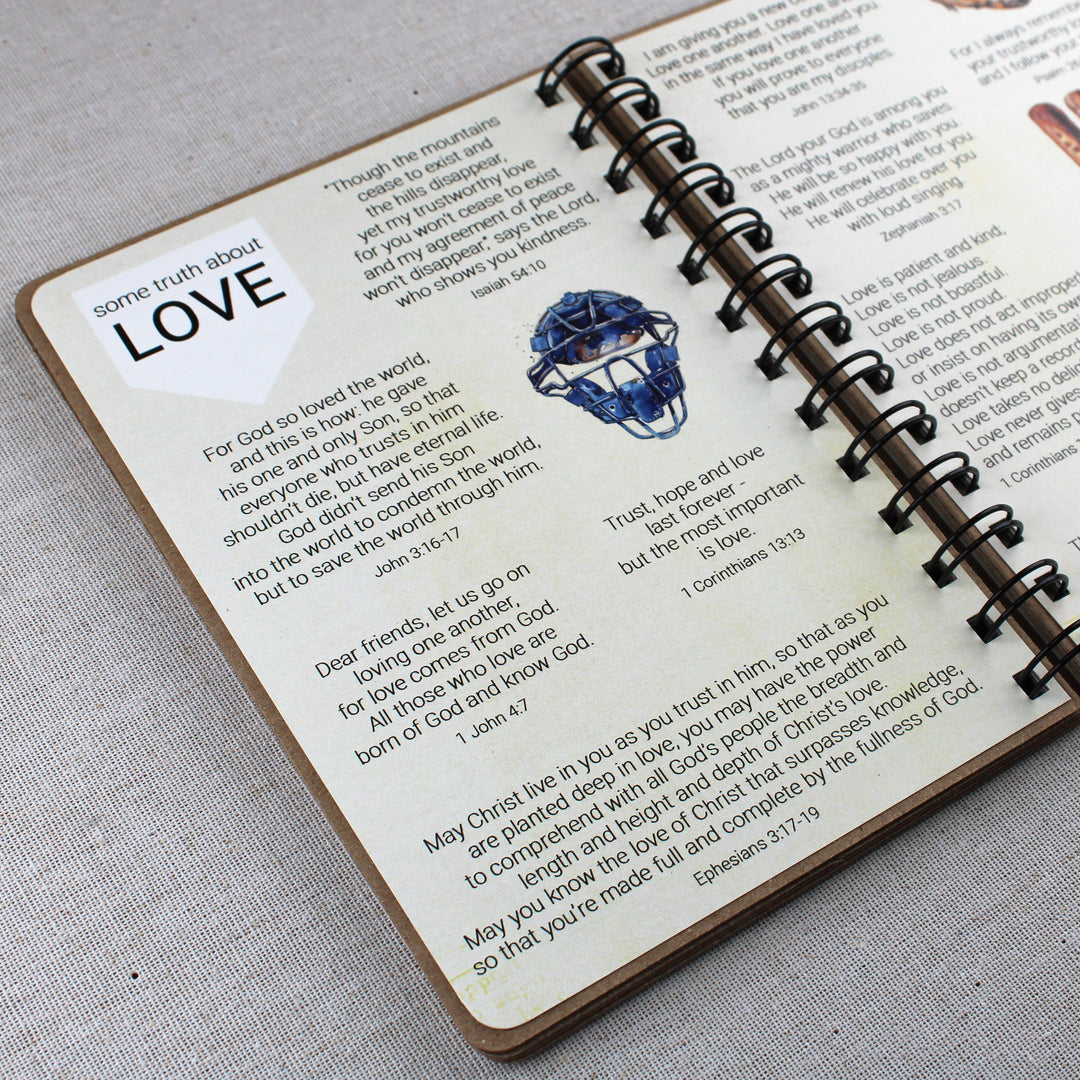 some truth about
LOVE
"Though the mountains
cease to exist and
the hills disappear,
yet my trustworthy love
for you won't cease to exist
and my agreement of peace
won't disappear", says the Lord,
who shows you kindness.
Isaiah 54:10
For God so loved the world,
and this is how: he gave
his one and only Son, so that
everyone who trusts in him
shouldn't die, but have eternal life.
God didn't send his Son
into the world to condemn the world,
but to save the world through him.
John 3:16-17
Trust, hope and love
last forever -
but the most important
is love.
1 Corinthians 13:13
Dear friends, let us go on
loving one another,
for love comes from God.
All those who love are
born of God and know God.
1 John 4:7
May Christ live in you as you trust in him, so that as you
are planted deep in love, you may have the power
to comprehend with all God's people the breadth and
length and height and depth of Christ's love.
May you know the love of Christ that surpasses knowledge,
so that you're made full and complete by the fullness of God.
Ephesians 3:17-19
I am giving you a new
Love one another. Love one
in the same way I have loved you.
If you love one another
you will prove to everyone
that you are my disciples
John 13:34-35
The Lord your God is among you
as a mighty warrior who saves.
He will be so happy with you.
He will renew his love for you.
He will celebrate over you
with loud singing.
Zephaniah 3:17
Love is patient and kind;
Love is not jealous.
Love is not boastful.
Love is not proud.
Love does not act
or insist on having its
Love is not
doesn't keep a
Love takes no
Love never gives
and remains
1 Corinthians
For I always
your trustworthy
and I follow your
Psalm